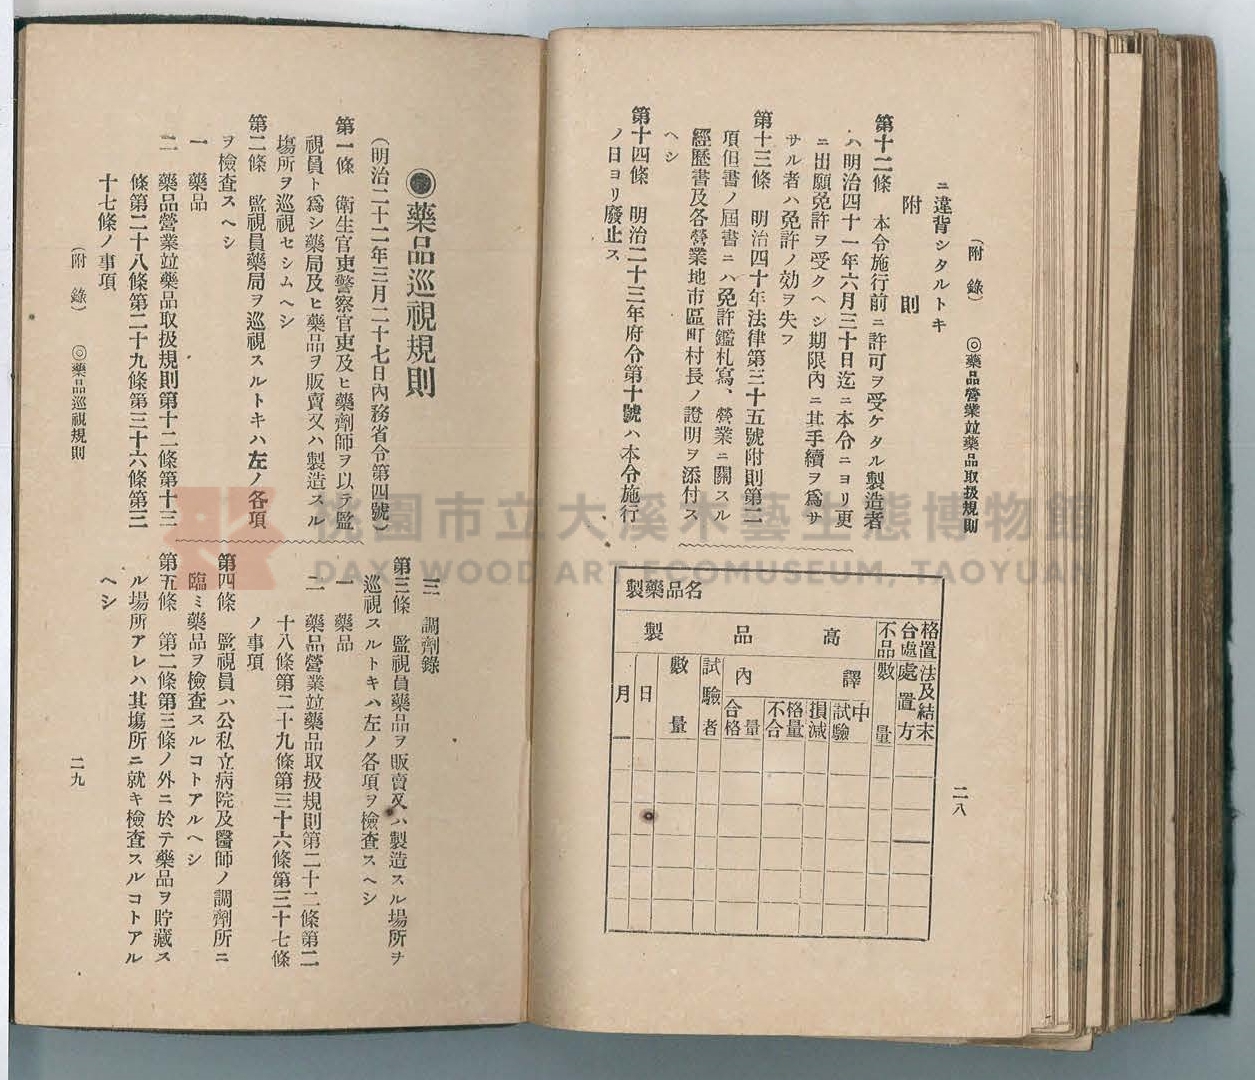 (附錄) ◎藥品營業竝藥品取扱規則
二八
ニ違背シタルトキ
附則
第十二條 本令施行前ニ許可ヲ受ケタル製造者
ハ明治四十一年六月三十日迄ニ本令ニヨリ更
ニ出願免許ヲ受クヘシ期限內ニ其手續ヲ爲サ
サル者ハ免許ノ効ヲ失フ
第十三條 明治四十年法律第三十五號附則第二
項但書ノ屆書ニハ免許鑑札寫、營業ニ關スル
經歷書及各營業地市區町村長ノ證明ヲ添付ス
ヘシ
第十四條 明治二十三年府令第十號ハ本令施行
ノ日ヨリ廢止ス
製藥品名
製品高
不合格品數量
台處置法及結末
處置方
內譯
月
日
數量
試驗者
合格量
不合格量
損減
試驗中
●藥品巡視規則
(明治二十二年三月二十七日內務省令第四號)
第一條 衛生官吏警察官吏及ヒ藥劑師ヲ以テ監
視員ト爲シ藥局及ヒ藥品ヲ販賣又ハ製造スル
塲所ヲ巡視セシムヘシ
第二條 監視員藥局ヲ巡視スルトキハ左ノ各項
ヲ檢査スヘシ
一 藥品
二 藥品營業竝藥品取扱規則第十二條第十三
條第二十八條第二十九條第三十六條第三
十七條ノ事項
三 調劑錄
第三條 監視員藥品ヲ販賣又ハ製造スル塲所ヲ
巡視スルトキハ左ノ各項ヲ檢査スヘシ
一 藥品
二 藥品營業竝藥品取扱規則第二十二條第二
十八條第二十九條第三十六條第三十七條
ノ事項
第四條 監視員ハ公私立病院及醫師ノ調劑所ニ
臨ミ藥品ヲ檢査スルコトアルヘシ
第五條 第二條第三條ノ外ニ於テ藥品ヲ貯藏ス
ル塲所アレハ其塲所ニ就キ檢査スルコトアル
ヘシ
(附錄) ◎藥品巡視規則
二九
桃園市立大溪木藝生態博物館
DAXI WOOD ART ECOMUSEUM, TAOYUAN